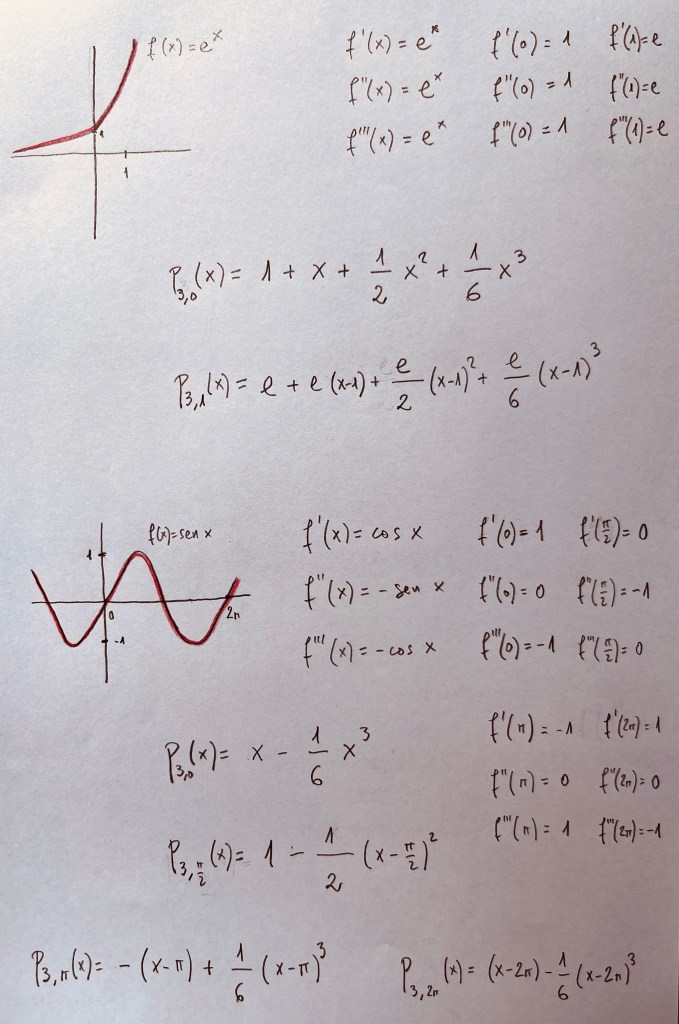 f(x) = eˣ
f'(x) = eˣ f'(0) = 1 f'(1) = e
f''(x) = eˣ f''(0) = 1 f''(1) = e
f'''(x) = eˣ f'''(0) = 1 f'''(1) = e
1
1
P₃,₀(x) = 1 + x + 1/2 x² + 1/6 x³
P₃,₁(x) = e + e (x-1) + e/2 (x-1)² + e/6 (x-1)³
f(x) = sen x
1
0
2π
-1
f'(x) = cos x f'(0) = 1 f'(π/2) = 0
f''(x) = - sen x f''(0) = 0 f''(π/2) = -1
f'''(x) = - cos x f'''(0) = -1 f'''(π/2) = 0
f'(π) = -1 f'(2π) = 1
f''(π) = 0 f''(2π) = 0
f'''(π) = 1 f'''(2π) = -1
P₃,₀(x) = x - 1/6 x³
P_{3,π/2}(x) = 1 - 1/2 (x - π/2)²
P_{3,π}(x) = - (x-π) + 1/6 (x-π)³
P_{3,2π}(x) = (x-2π) - 1/6 (x-2π)³